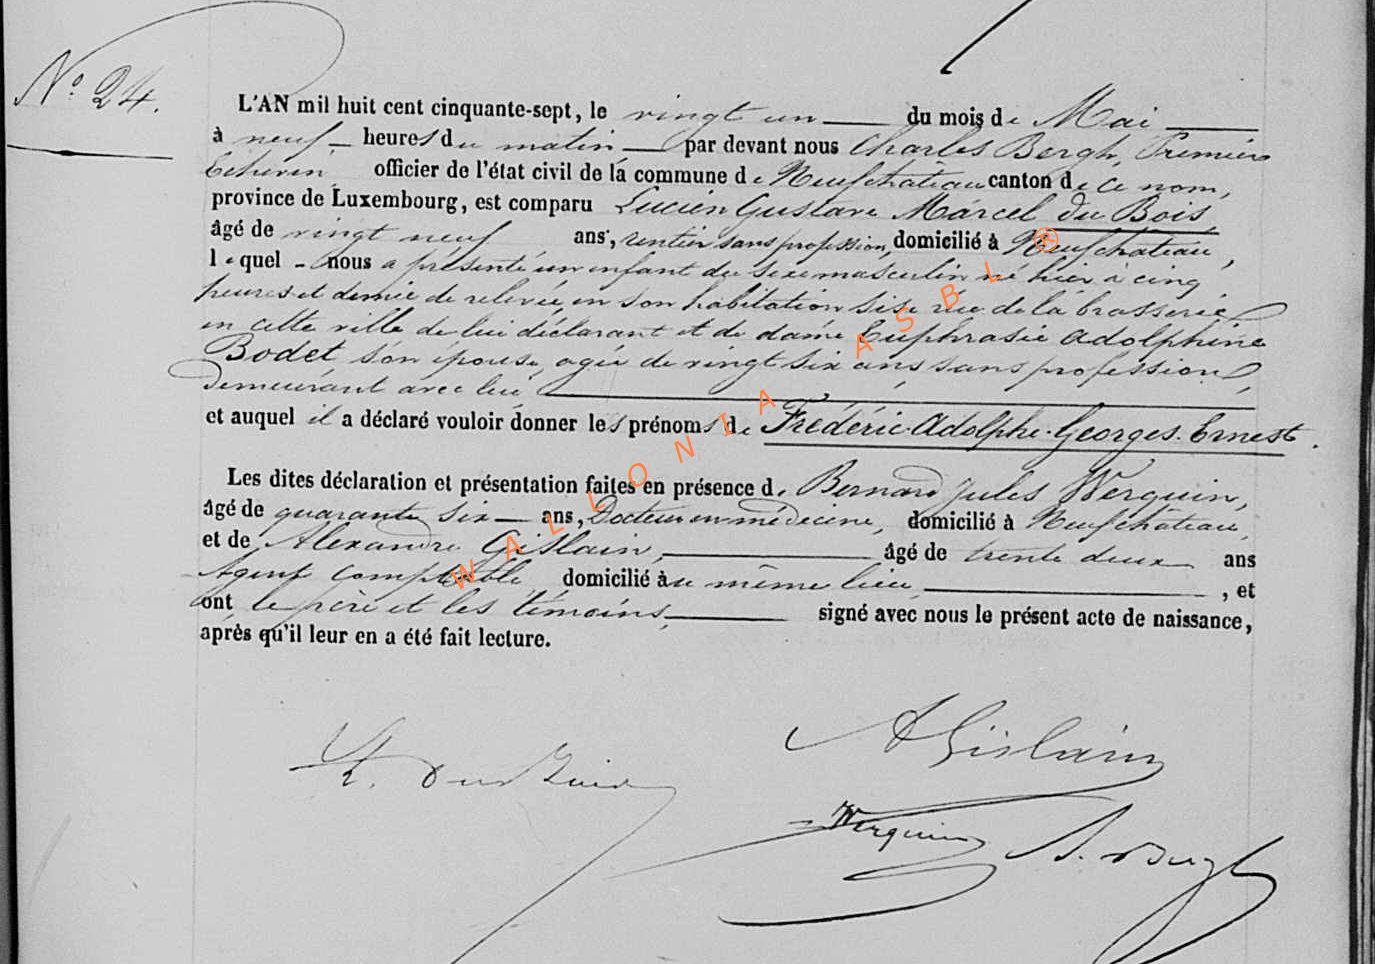 N° 24.
L'AN mil huit cent cinquante-sept, le vingt un du mois de Mai
à neuf heures du matin par devant nous Charles Bergh, Premier
Echevin officier de l'état civil de la commune de Neufchateau canton de ce nom,
province de Luxembourg, est comparu Lucien Gustave Marcel du Bois
âgé de vingt neuf ans, rentier sans profession, domicilié à Neufchateau,
lequel nous a présenté un enfant du sexe masculin né hier à cinq
heures et demie de relevée en son habitation sise rue de la brasserie
en cette ville de lui déclarant et de dame Euphrasie Adolphine
Bodet son épouse, agée de vingt six ans, sans profession,
demeurant avec lui,
et auquel il a déclaré vouloir donner les prénoms de Frédéric-Adolphe-Georges-Ernest.
Les dites déclaration et présentation faites en présence de Bernard Jules Werquin,
âgé de quarante six ans, Docteur en médecine, domicilié à Neufchateau,
et de Alexandre Gislain, âgé de trente deux ans
Agent comptable domicilié au même lieu, , et
ont le père et les témoins, signé avec nous le présent acte de naissance,
après qu'il leur en a été fait lecture.
A Gislain
Werquin
WALLONIA ASBL ®